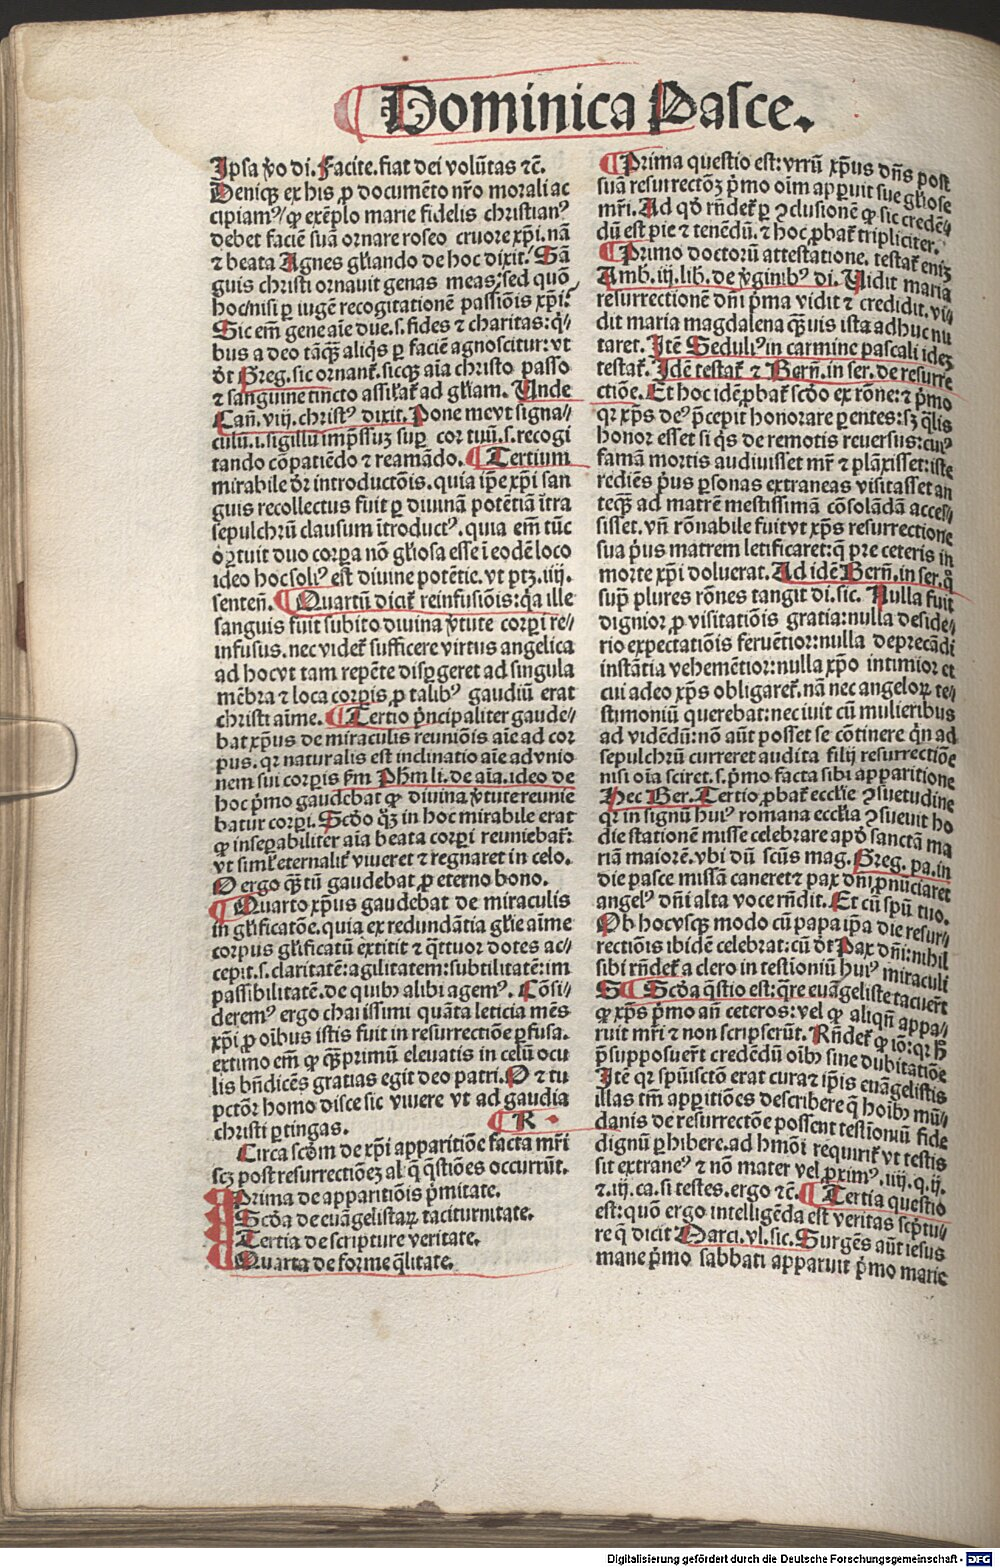 Dominica Pasce.
Ipsa v̉o di. Facite. fiat dei volūtas ⁊c̄.
Deniqꝫ ex his ꝓ documēto nr̄o morali ac
cipiamꝰ/ꝙ exēplo marie fidelis christianꝰ
debet faciē suā ornare roseo cruore xp̄i. nā
⁊ beata Agnes gl̄iando de hoc dixit. Sā
guis christi ornauit genas meas: sed quō
hoc/nisi ꝑ iugē recogitationē passiōis xp̄i?
Sic em̄ gene aīe due. s. fides ⁊ charitas: q̄/
bus a deo tāqꝫ̄ aliq̇s ꝑ faciē agnoscitur: vt
d̄t Greg. sic ornant̄. sicqꝫ aīa christo passo
⁊ sanguine tincto assil̄at̄ ad gl̄iam. Unde
Cañ. viij. christꝰ dixit. Pone me vt signa/
culū. i. sigillū imp̄ssuꝫ suꝑ cor tuū. s. recogi
tando cōpatiēdo ⁊ reamādo. Tertium
mirabile d̄r introductōis. quia ip̄e xp̄i san
guis recollectus fuit ꝑ diuinā potētiā ītra
sepulchrū clausum ītroductꝰ. quia em̄ tūc
oꝑtuit duo corꝑa nō gl̄iosa esse ī eodē loco
ideo hoc soliꝰ est diuine potētie. vt ptꝫ. iiij.
senteñ. Quartū dicit̄ reinfusiōis: q̇a ille
sanguis fuit subito diuina v̉tute corꝑi re/
infusus. nec videt̄ sufficere virtus angelica
ad hoc vt tam repēte disꝑgeret ad singula
mēbra ⁊ loca corꝑis ꝓ talibꝰ gaudiū erat
christi aīme. Tertio p̄ncipaliter gaude/
bat xp̄us de miraculis reuniōis aīe ad cor
pus. qr naturalis est inclinatio aīe ad vnio
nem sui corꝑis ẜm Ph̄m li. de aīa. ideo de
hoc p̄mo gaudebat ꝙ diuina v̉tute reunie
batur corꝑi. Scd̄o qꝫ in hoc mirabile erat
ꝙ inseꝑabiliter aīa beata corꝑi reuniebat̄:
vt siml̄ eternalit̄ viueret ⁊ regnaret in celo.
O ergo qꝫ̄tū gaudebat ꝓ eterno bono.
Quarto xp̄us gaudebat de miraculis
in gl̄ificatōe. quia ex redundātia gl̄ie aīme
corpus gl̄ificatū extitit ⁊ q̄ttuor dotes ac/
cepit. s. claritatē: agilitatem: subtilitatē: im
passibilitatē. de quibꝰ alibi agemꝰ. Cōsi/
deremꝰ ergo chaɼissimi quāta leticia mēs
xp̄i ꝓ oībus istis fuit in resurrectiōe ꝑfusa.
extimo em̄ ꝙ qꝫ̄primū eleuatis in celū ocu
lis bn̄dicēs gratias egit deo patri. O ⁊ tu
pctōr homo disce sic viuere vt ad gaudia
christi ꝑtingas. R.
Circa scd̄m de xp̄i apparitiōe facta mr̄i
scꝫ post resurrectiōeꝫ al̄ q̄ q̄stiōes occurrūt.
Prima de apparitiōis p̄mitate.
Scd̄a de euāgelistaꝝ taciturnitate.
Tertia de scripture veritate.
Quarta de forme q̄litate.
Prima questio est: vtrū xp̄us dn̄s post
suā resurrectōꝫ p̄mo oīm apparuit sue gl̄iose
mr̄i. Ad qd̄ rn̄det̄ ꝑ ꝯclusionē ꝙ sic credē/
dū est pie ⁊ tenēdū. ⁊ hoc ꝓbat̄ tripliciter.
Primo doctorū attestatione. testat̄ eniꝫ
Amb. iij. lib. de v̉ginibꝰ di. Uidit maria
resurrectionē dn̄i p̄ma vidit ⁊ credidit. vi/
dit maria magdalena qꝫ̄uis ista adhuc nu
taret. Itē Seduliꝰ in carmine pascali ideꝫ
testat̄. Idē testat̄ ⁊ Berñ. in ser. de resurre
ctiōe. Et hoc idē ꝓbat̄ scd̄o ex rōne: ⁊ p̄mo
qr xp̄s deꝰ p̄cepit honorare ꝑentes: sꝫ q̄lis
honor esset si q̇s de remotis reuersus: cuiꝰ
famā mortis audiuisset mr̄ ⁊ plāxisset: iste
rediēs pr̄us ꝑsonas extraneas visitasset an
teqꝫ̄ ad matrē mestissimā cōsolādā acces/
sisset. vñ rōnabile fuit vt xp̄s resurrectione
sua pr̄us matrem letificaret: q̄ pre ceteris in
morte xp̄i doluerat. Ad idē Berñ. in ser. q̄
suꝑ plures rōnes tangit di. sic. Nulla fuit
dignior ꝓ visitatiōis gratia: nulla deside/
rio expectatiōis feruētior: nulla deprecādi
instātia vehemētior: nulla xp̄o intimior et
cui adeo xp̄s obligaret̄. nā nec angeloꝝ te/
stimoniū querebat: nec iuit cū mulieribus
ad vidēdū: nō aūt posset se cōtinere q̇n ad
sepulchrū curreret audita filij resurrectiōe
nisi oīa sciret. s. p̄mo facta sibi apparitione
Hec Ber. Tertio ꝓbat̄ eccl̄ie ꝯsuetudine
qr in signū huiꝰ romana eccl̄ia ꝯsueuit ho
die stationē misse celebrare apd̄ sanctā ma
riā maiorē. vbi dū scūs mag. Greg. pa. in
die pasce missā caneret ⁊ pax dn̄i ꝓnūciaret
angelꝰ dn̄i alta voce rn̄dit. Et cū spū tuo.
Ob hoc vsqꝫ modo cū papa ip̄a die resur/
rectiōis ibidē celebrat: cū d̄t Pax dn̄i: nihil
sibi rn̄det̄ a clero in testioniū huiꝰ miraculi
Scd̄a q̄stio est: q̄re euāgeliste tacuer̄t
ꝙ xp̄s p̄mo añ ceteros: vel ꝙ aliqñ appa/
ruit mr̄i ⁊ non scripserūt. Rn̄det̄ ꝙ iō: qr h̄
p̄supposuer̄t credēdū oībꝰ sine dubitatiōe
Itē qr spūisctō erat cura ⁊ ip̄is euāgelistis
illas tm̄ apparitiōes describere q̄ hoībꝰ mū/
danis de resurrectōe possent testioniū fide
dignū ꝑhibere. ad hmōi requirit̄ vt testis
sit extraneꝰ ⁊ nō mater vel ꝓximꝰ. iiij. q. ij.
⁊. iij. ca. si testes. ergo ⁊c̄. Tertia questio
est: quō ergo intelligēda est veritas scp̄tu/
re q̄ dicit Marci. vl. sic. Surgēs aūt iesus
mane p̄mo sabbati apparuit p̄mo marie
Digitalisierung gefördert durch die Deutsche Forschungsgemeinschaft - DFG